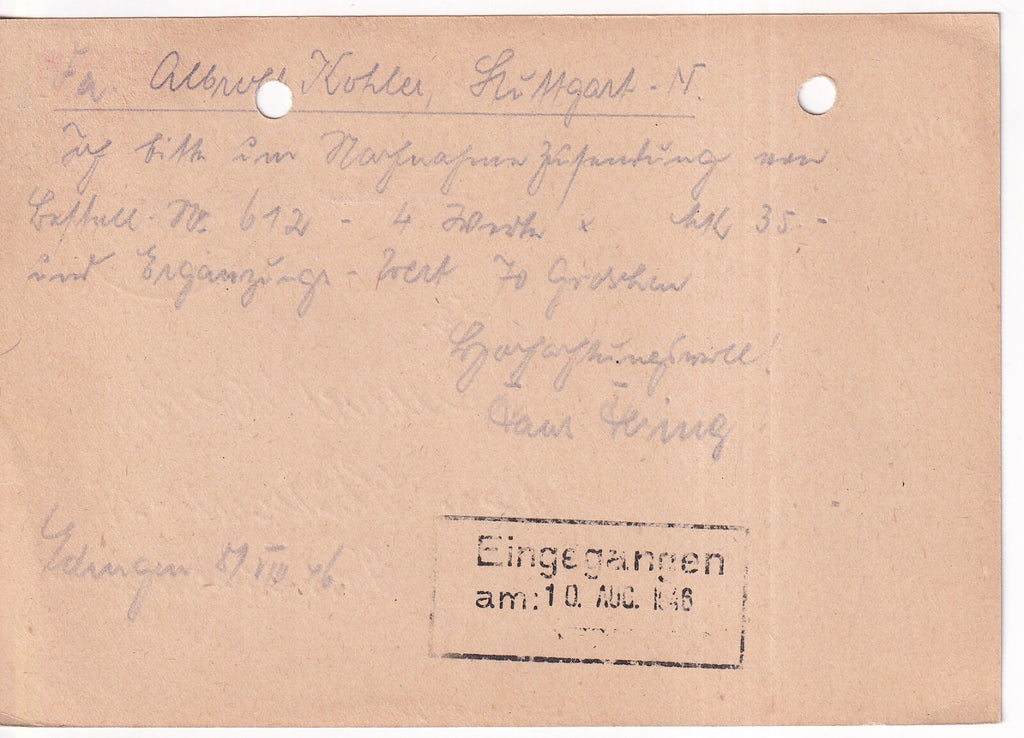 Fa. Albrecht Kohler, Stuttgart-N.
Ich bitte um Nachnahme Zusendung von
Bestell. Nr. 612 - 4 Werte x 35.-
und Ergänzungs-Wert 70 Groschen
Hochachtungsvoll!
Edingen VIII. 46.
Eingegangen
am: 10. AUG. 1946